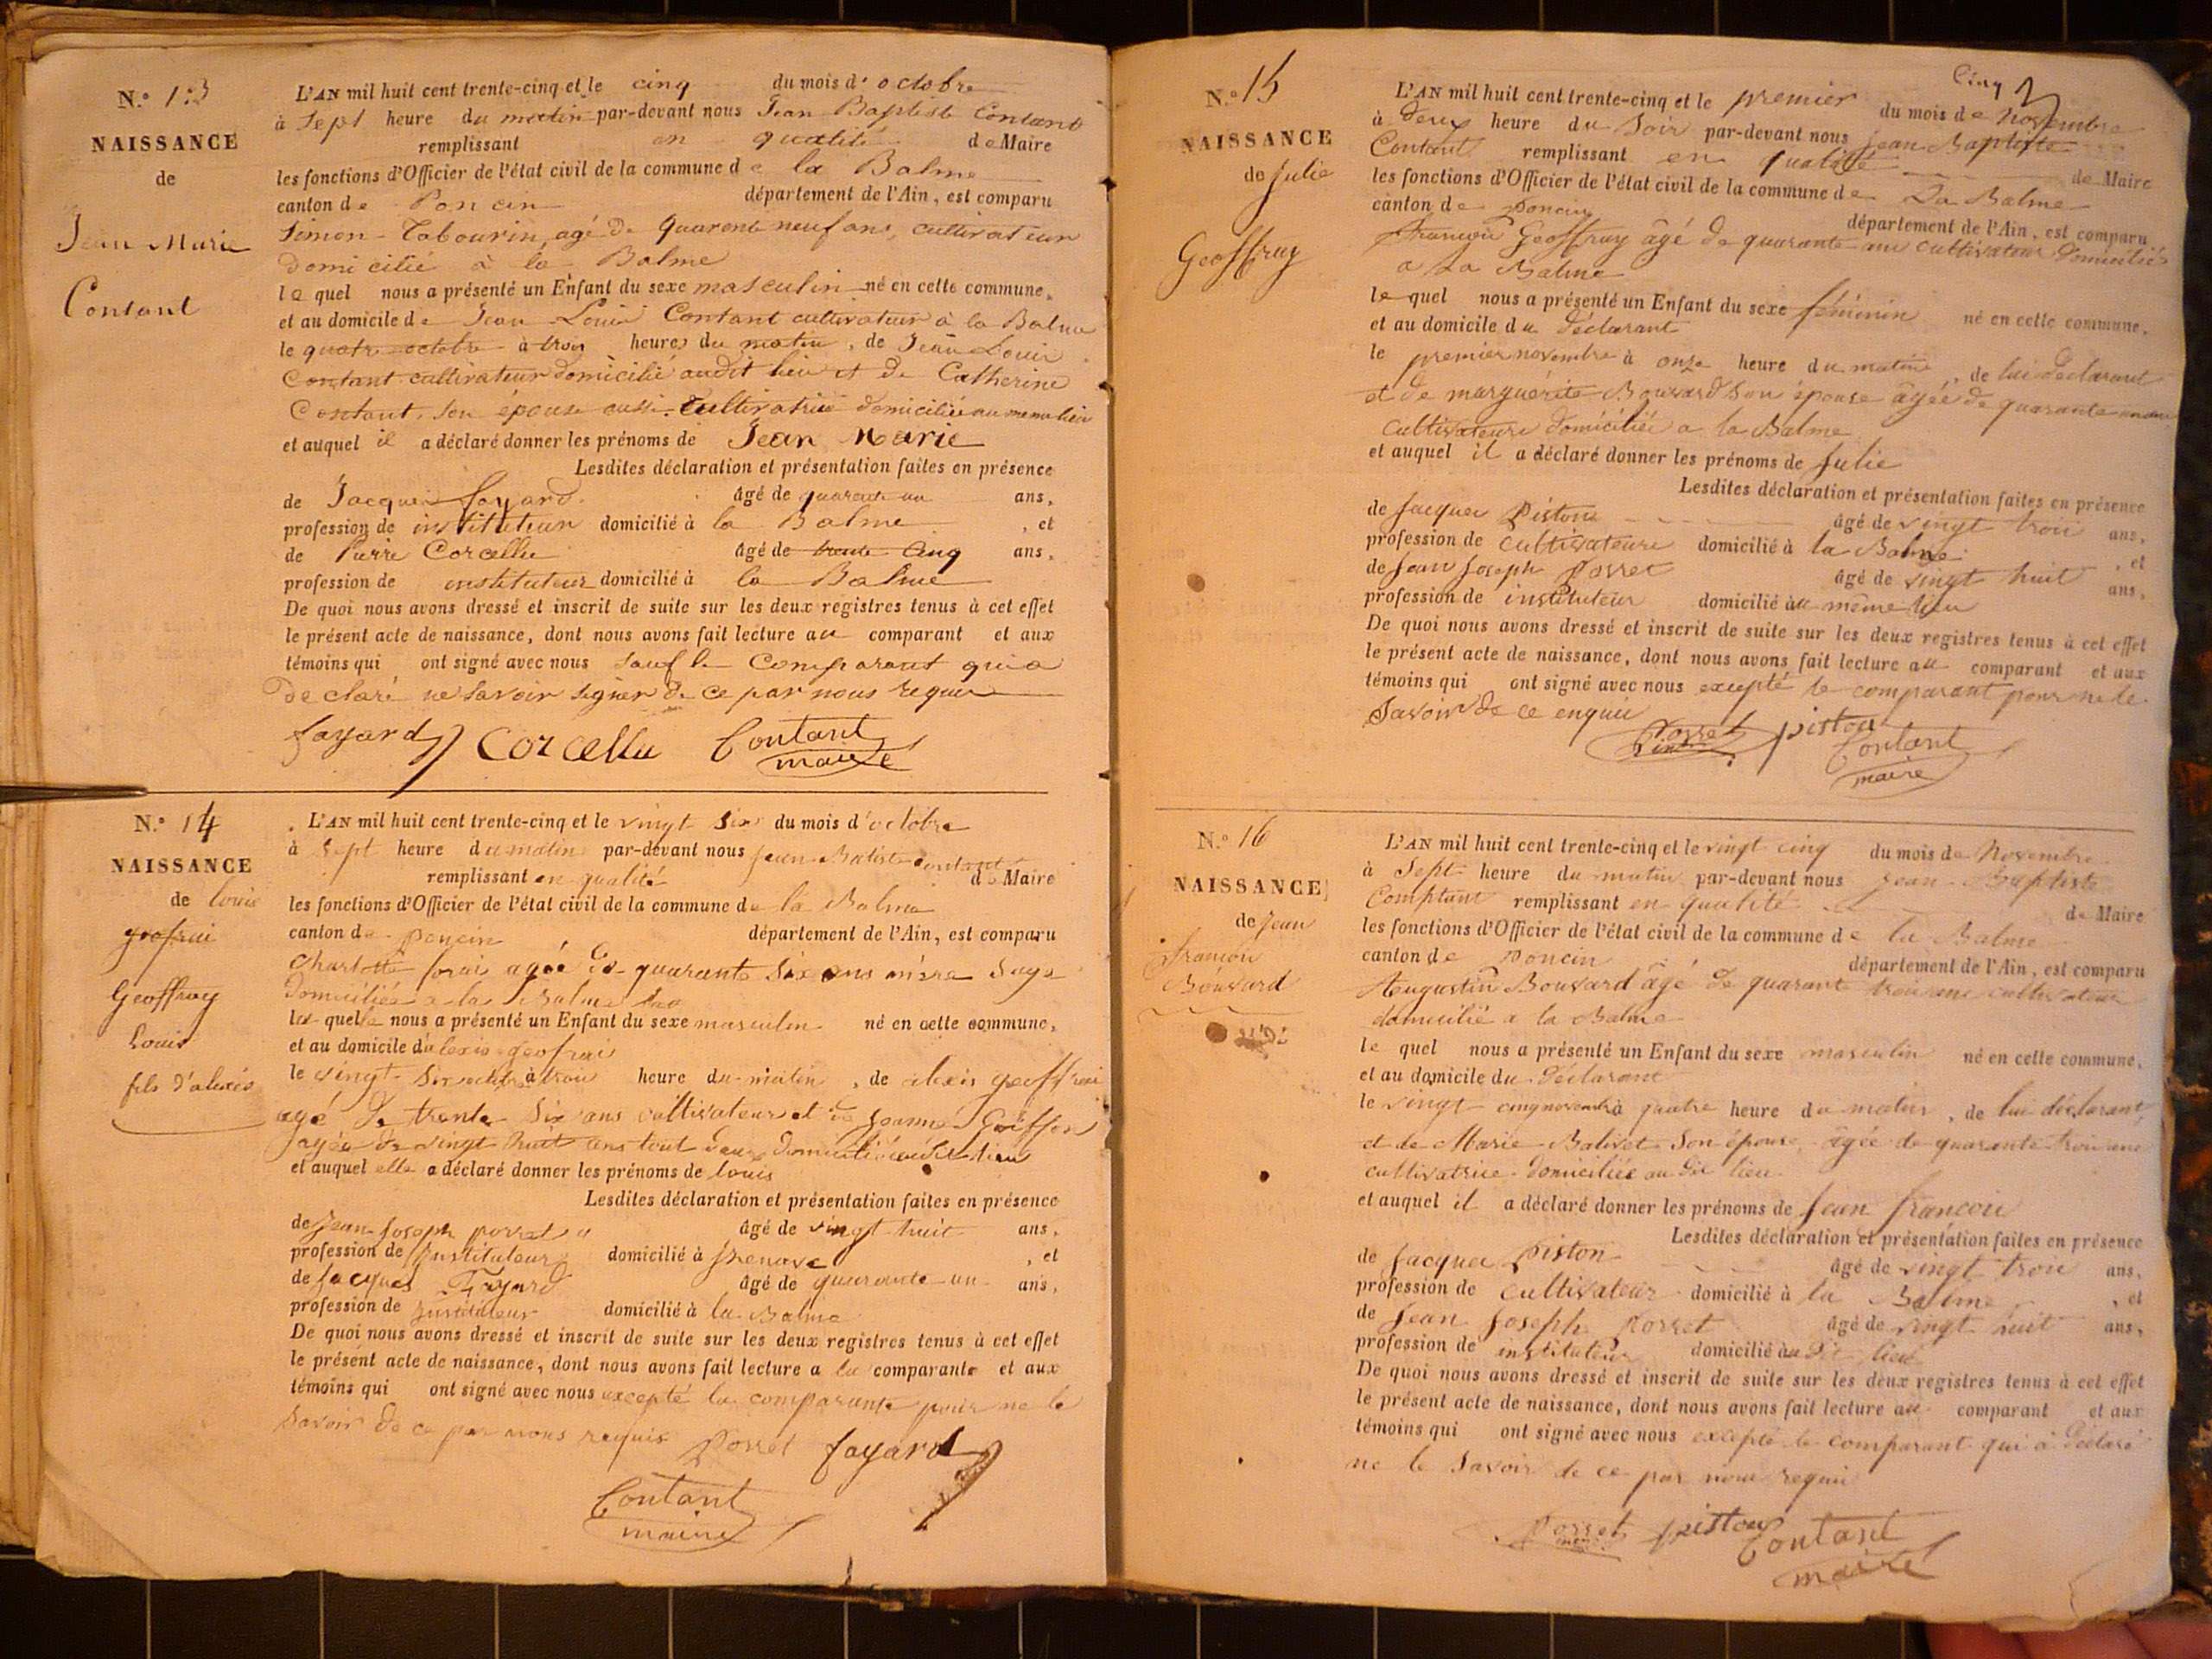 N.º 13
NAISSANCE
de
Jean Marie
Contant
L'AN mil huit cent trente-cinq et le cinq du mois d'octobre
à Sept heure du matin par-devant nous Jean Baptiste Contant
remplissant en qualité de Maire
les fonctions d'Officier de l'état civil de la commune de la Balme
canton de Poncin département de l'Ain, est comparu
Simon Tabourin, agé de quarente neuf ans, cultivateur
domicilié à la Balme
le quel nous a présenté un Enfant du sexe masculin né en cette commune,
et au domicile de Jean Louis Contant cultivateur à la Balme
le quatre octobre à trois heures du matin, de Jean Louis
Contant cultivateur domicilié audit lieu et de Catherine
Contant, son épouse aussi cultivatrice domiciliée au meme lieu
et auquel il a déclaré donner les prénoms de Jean Marie
Lesdites déclaration et présentation faites en présence
de Jacques fayard âgé de quarente un ans,
profession de instituteur domicilié à la Balme, et
de Pierre Corcellu âgé de trente Cinq ans,
profession de instituteur domicilié à la Balme
De quoi nous avons dressé et inscrit de suite sur les deux registres tenus à cet effet
le présent acte de naissance, dont nous avons fait lecture au comparant et aux
témoins qui ont signé avec nous sauf le Comparant qui a
declaré ne savoir signer de ce par nous requis
fayard Corcellu Contant
maire
N.º 14
NAISSANCE
de louis
geofrai
Geoffray
Louis
fils d'alexis
L'AN mil huit cent trente-cinq et le vingt Six du mois d'octobre
à Sept heure du matin par-devant nous jean Batiste contant
remplissant en qualité de Maire
les fonctions d'Officier de l'état civil de la commune de la Balme
canton de poncin département de l'Ain, est comparu
Charlotte agée de quarante Six ans mère Sage
Domiciliée a la Balme
la quelle nous a présenté un Enfant du sexe masculin né en cette commune,
et au domicile d'alexis geofrai
le vingt Six octobre à trois heure du matin, de alexis geoffrai
agé de trente Six ans cultivateur et de jeanne Goiffon
agée de vingt huit ans tout deux Domicilié audit lieu
et auquel elle a déclaré donner les prénoms de louis
Lesdites déclaration et présentation faites en présence
de jean joseph porret âgé de vingt huit ans,
profession de instituteur domicilié à, et
de jacques Fayard âgé de quarante un ans,
profession de instituteur domicilié à la Balme
De quoi nous avons dressé et inscrit de suite sur les deux registres tenus à cet effet
le présent acte de naissance, dont nous avons fait lecture a la comparante et aux
témoins qui ont signé avec nous excepté la comparante pour ne le
savoir de ce par nous requis Porret fayard
Contant
maire
N.º 15
NAISSANCE
de Julie
Geoffray
Cinq
L'AN mil huit cent trente-cinq et le premier du mois de Novembre
à deux heure du Soir par-devant nous Jean Baptiste
Contant remplissant en qualité de Maire
les fonctions d'Officier de l'état civil de la commune de La Balme
canton de poncin département de l'Ain, est comparu
françois Geoffray âgé de quarante ans cultivateur domicilié
a La Balme
le quel nous a présenté un Enfant du sexe féminin né en cette commune,
et au domicile du déclarant
le premier novembre à onze heure du matin, de lui déclarant
et de marguérite Bouvard son épouse âgée de quarante
cultivateure domiciliée a la Balme
et auquel il a déclaré donner les prénoms de Julie
Lesdites déclaration et présentation faites en présence
de Jacques Piston âgé de vingt trois ans,
profession de cultivateure domicilié à la Balme, et
de Jean Joseph Porret âgé de vingt huit ans,
profession de instituteur domicilié au même lieu
De quoi nous avons dressé et inscrit de suite sur les deux registres tenus à cet effet
le présent acte de naissance, dont nous avons fait lecture au comparant et aux
témoins qui ont signé avec nous excepté le comparant pour ne le
Savoir de ce enquis
Porret piston
Contant
maire
N.º 16
NAISSANCE
de Jean
françois
Bouvard
L'AN mil huit cent trente-cinq et le vingt cinq du mois de Novembre
à Sept heure du matin par-devant nous Jean Baptiste
Comptant remplissant en qualité de Maire
les fonctions d'Officier de l'état civil de la commune de la Balme
canton de Poncin département de l'Ain, est comparu
Augustin Bouvard âgé de quarante trois ans cultivateur
domicilié a la Balme
le quel nous a présenté un Enfant du sexe masculin né en cette commune,
et au domicile du déclarant
le vingt cinq novembre à quatre heure du matin, de lui déclarant
et de Marie Balivet Son épouse, âgée de quarante trois ans
cultivatrice domiciliée au dit lieu
et auquel il a déclaré donner les prénoms de Jean françois
Lesdites déclaration et présentation faites en présence
de Jacques Piston âgé de vingt trois ans,
profession de cultivateur domicilié à la Balme, et
de Jean Joseph Porret âgé de vingt huit ans,
profession de instituteur domicilié au dit lieu
De quoi nous avons dressé et inscrit de suite sur les deux registres tenus à cet effet
le présent acte de naissance, dont nous avons fait lecture au comparant et aux
témoins qui ont signé avec nous excepté le comparant qui a déclaré
ne le Savoir de ce par nous requis
Porret piston Contant
maire